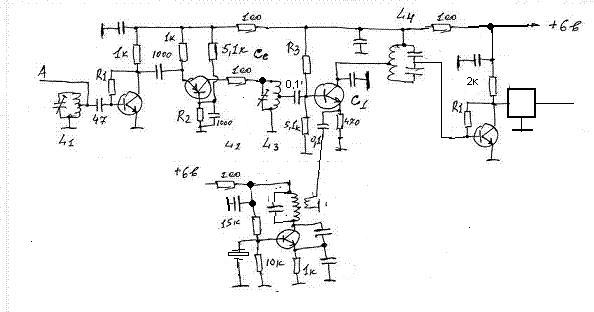 100
L4
100
+6в
1к
1к
1000
5,1к
Cс
R3
A
R1
100
0,1
C1
2к
R1
47
R2
1000
5,1к
0,1
470
L1
L2
L3
+6в
100
15к
10к
1к